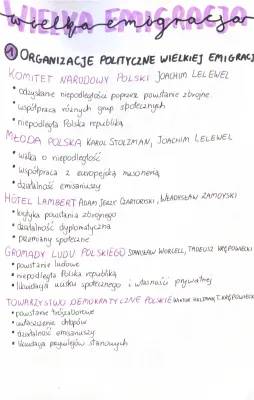 WIELKA EMIGRACJA
wielka emigracja
1 ORGANIZACJE POLITYCZNE WIELKIEJ EMIGRACJ
KOMITET NARODOWY POLSKI JOACHIM LELEWEL
• odzyskanie niepodległości poprzez powstanie zbrojne
• współpraca różnych grup społecznych
• niepodległa Polska republiką
MŁODA POLSKA KAROL STOLZMAN, JOACHIM LELEWEL
• walka o niepodległość
• współpraca z europejską masonerią
• działalność emisariuszy
HÔTEL LAMBERT ADAM JERZY CZARTORYSKI, WŁADYSŁAW ZAMOYSKI
• krytyka powstania zbrojnego
• działalność dyplomatyczna
• przemiany społeczne
GROMADY LUDU POLSKIEGO STANISŁAW WORCELL, TADEUSZ KRĘPOWIECKI
• powstanie ludowe
• niepodległa Polska republiką
• likwidacja ucisku społecznego i własności prywatnej
TOWARZYSTWO DEMOKRATYCZNE POLSKIE WIKTOR HELTMAN, T. KRĘPOWIECK
• powstanie trójzaborowe
• uwłaszczenie chłopów
• działalność emisariuszy
• likwidacja przywilejów stanowych